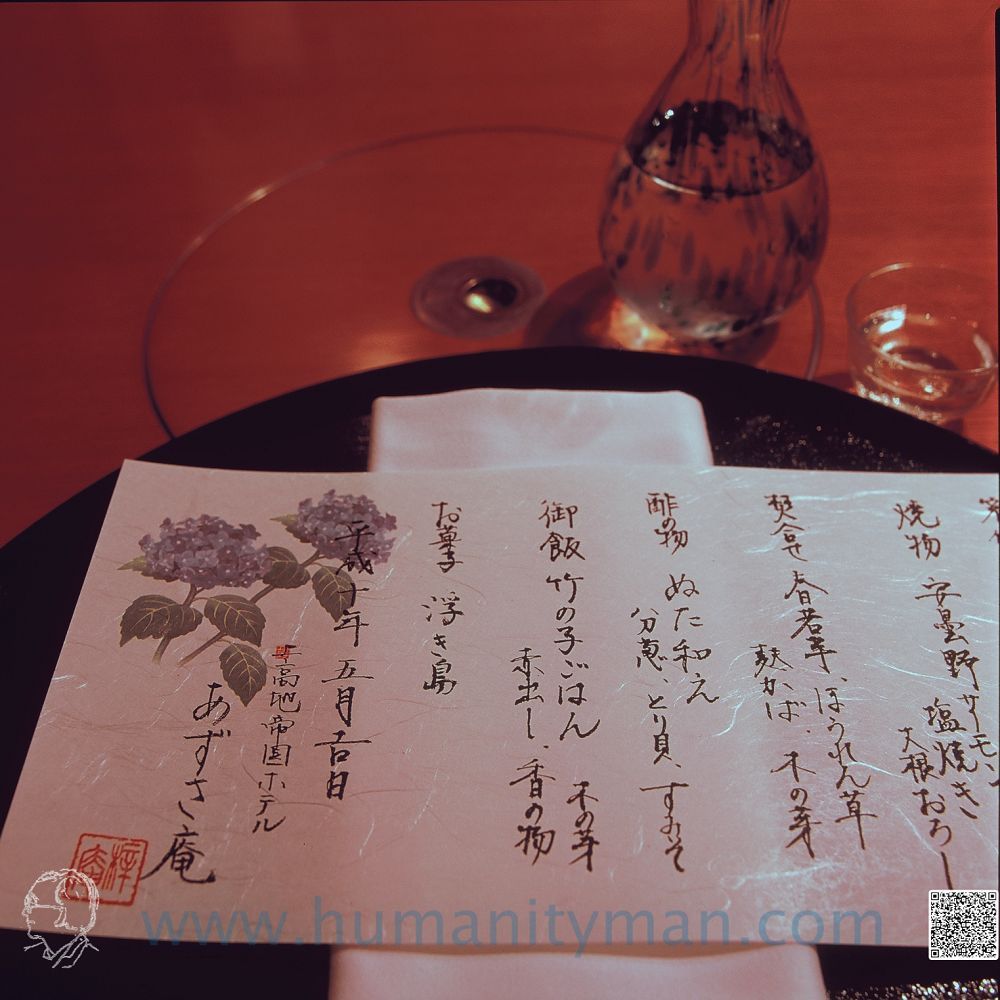 焼物 安曇野サーモン
塩焼き
大根おろし
焚合せ 春若芽、ほうれん草
麸かば、木の芽
酢の物 ぬた和え
分葱、とり貝、すみそ
御飯 竹の子ごはん 木の芽
赤出し、香の物
お菓子 浮き島
平成十年 五月吉日
上高地帝国ホテル
あずさ庵
梓庵
www.humanityman.com